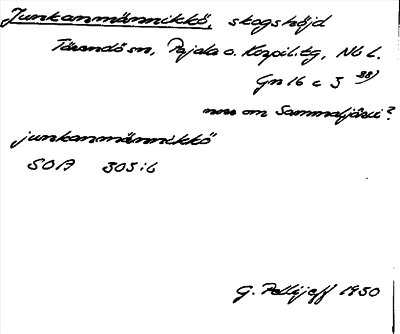 Junkanmännikkö, skogshöjd
Tärendö sn, Pajala o. Korpil. tg, Nb l.
Gn 16 c 3
nno om Sammaljärvi?
junkanmännikkö
SOA 303:6
G. Pellijeff 1950